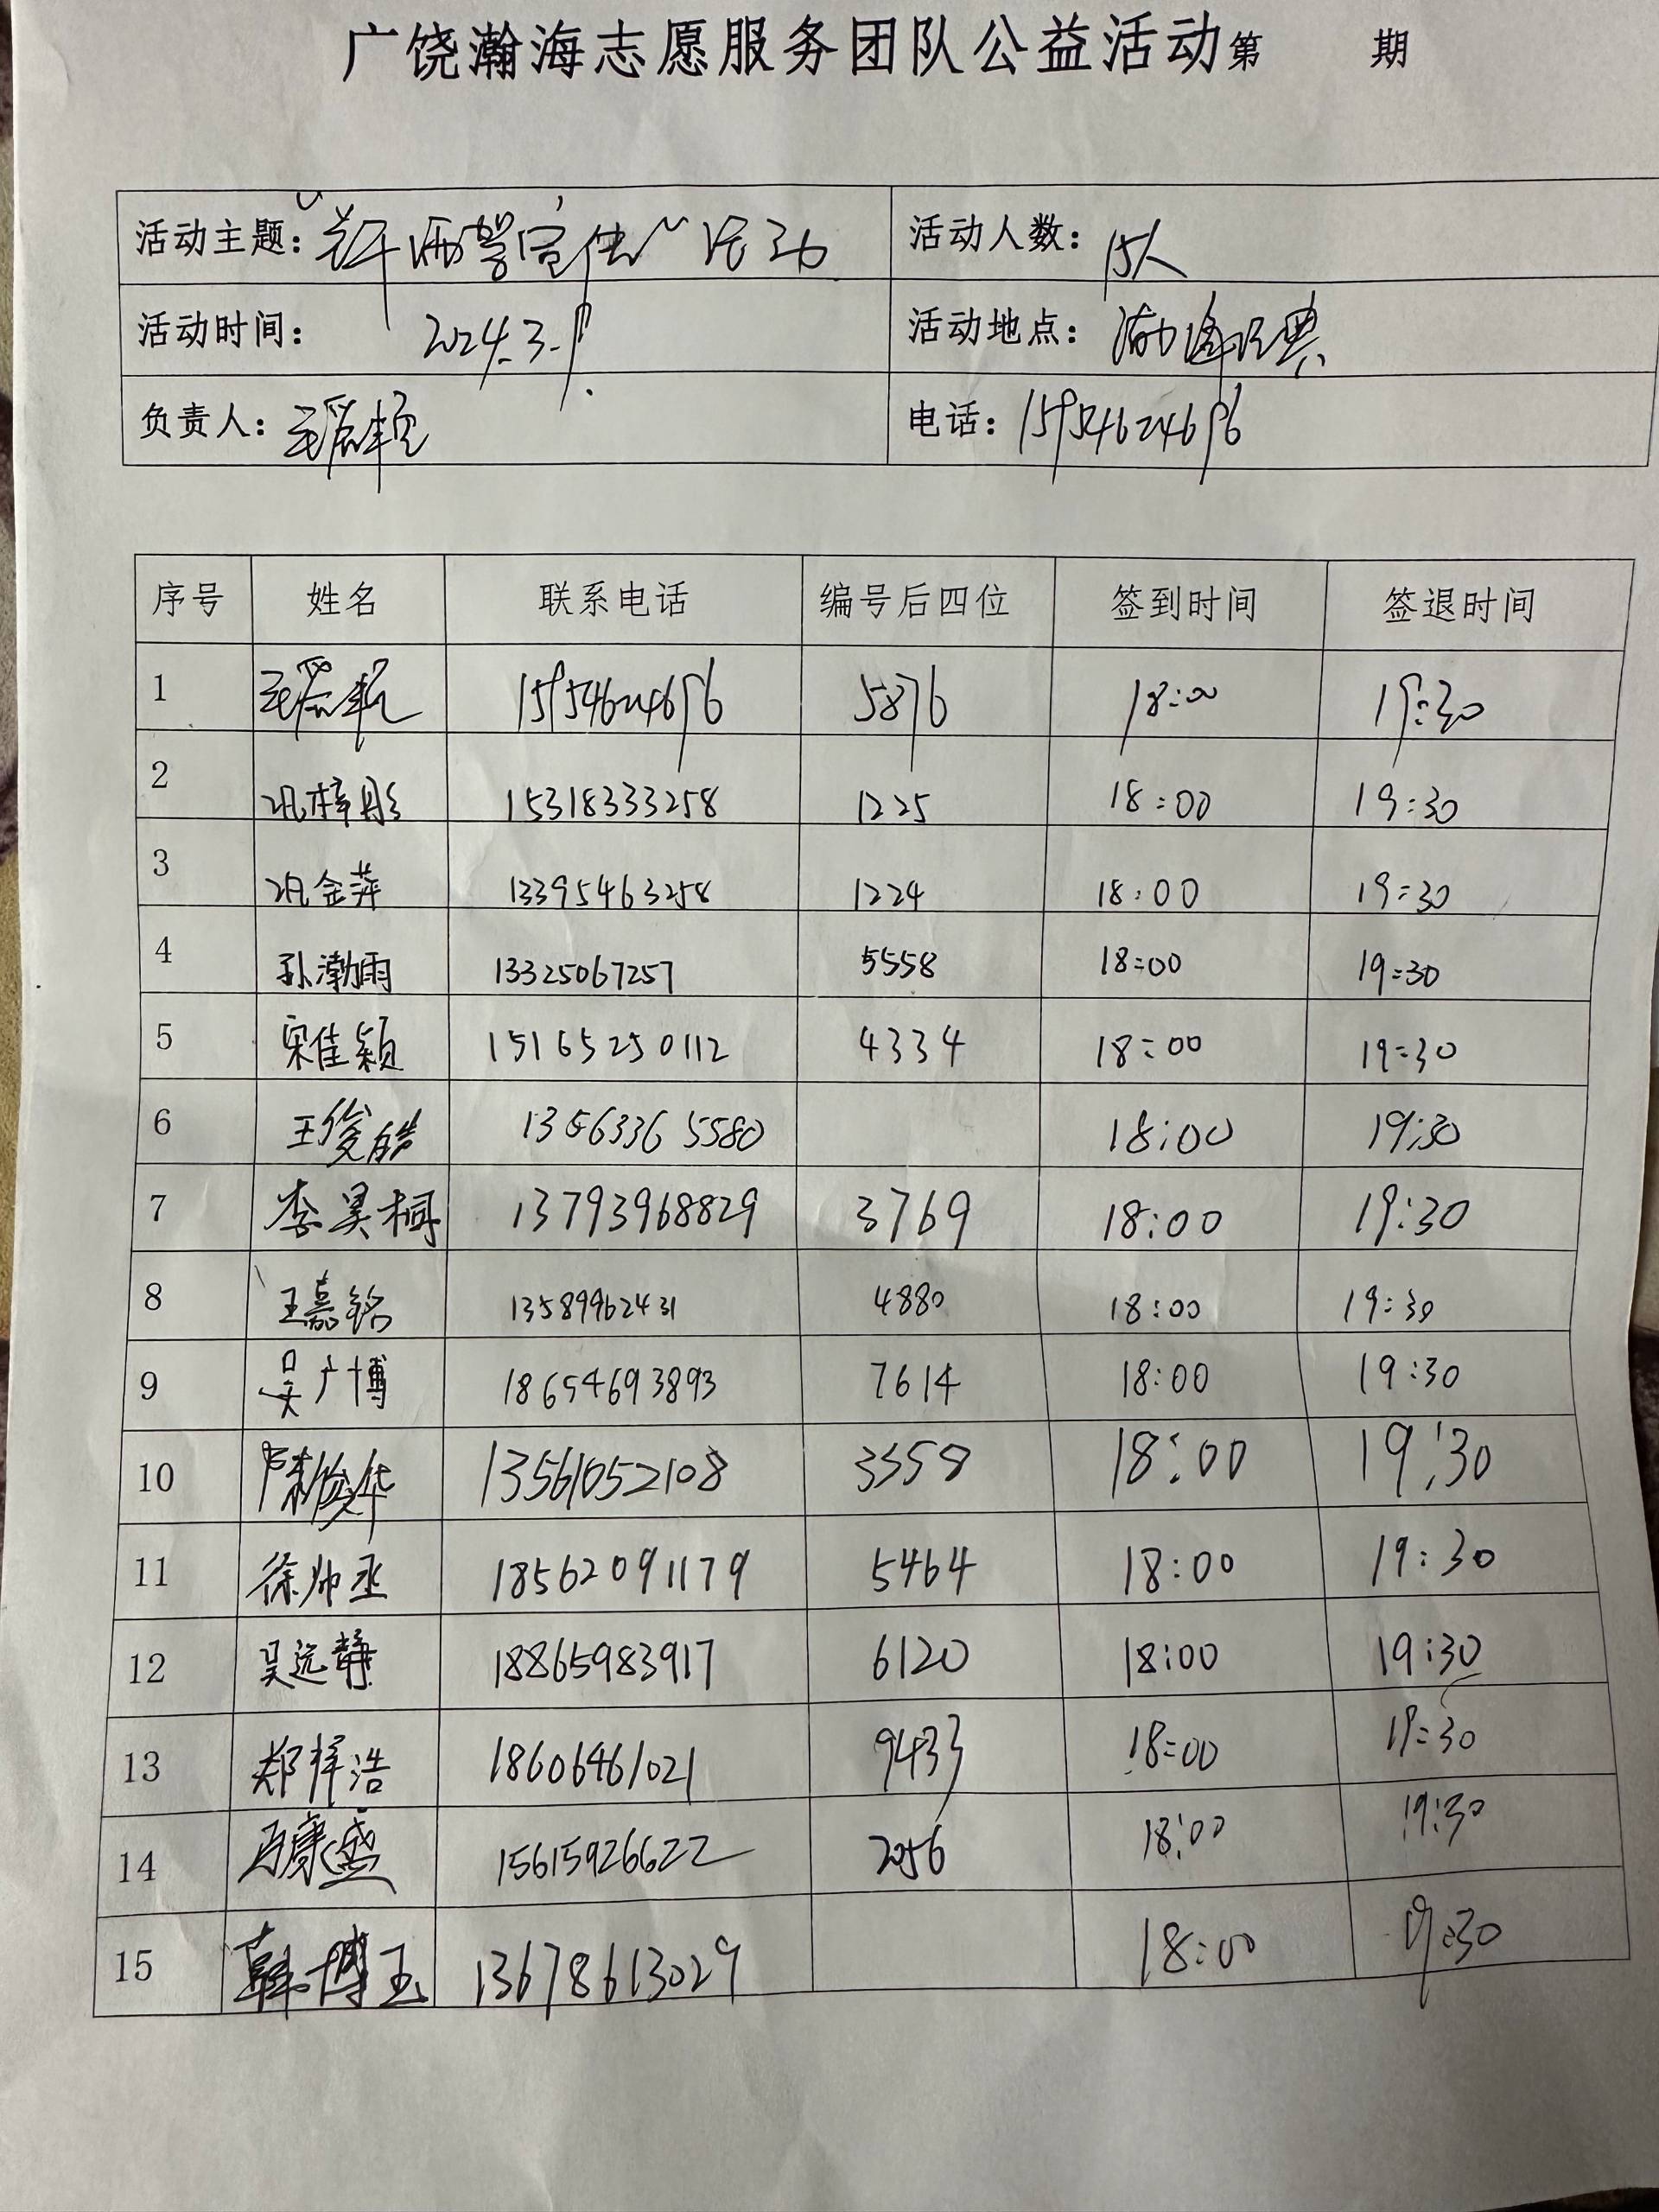 广饶瀚海志愿服务团队公益活动第 期
活动主题： 活动 活动人数：15人
活动时间： 2024.3.9. 活动地点：渤海经典
负责人： 电话：15954624696
序号 姓名 联系电话 编号后四位 签到时间 签退时间
1 15954624696 5876 18:00 19:30
2 巩梓彤 15318333258 1225 18:00 19:30
3 巩金萍 13395463258 1224 18:00 19:30
4 孙渤雨 13325067257 5558 18:00 19:30
5 宋佳颖 15165250112 4334 18:00 19:30
6 王俊皓 13563365580 18:00 19:30
7 李昊桐 13793968829 3769 18:00 19:30
8 王嘉铭 13589962431 4880 18:00 19:30
9 吴广博 18654693893 7614 18:00 19:30
10 陈俊华 13561052108 3358 18:00 19:30
11 徐帅丞 18562091179 5464 18:00 19:30
12 吴远静 18865983917 6120 18:00 19:30
13 郑梓浩 18606461021 9433 18:00 19:30
14 康盛 15615926622 2056 18:00 19:30
15 韩博玉 13678613029 18:00 19:30